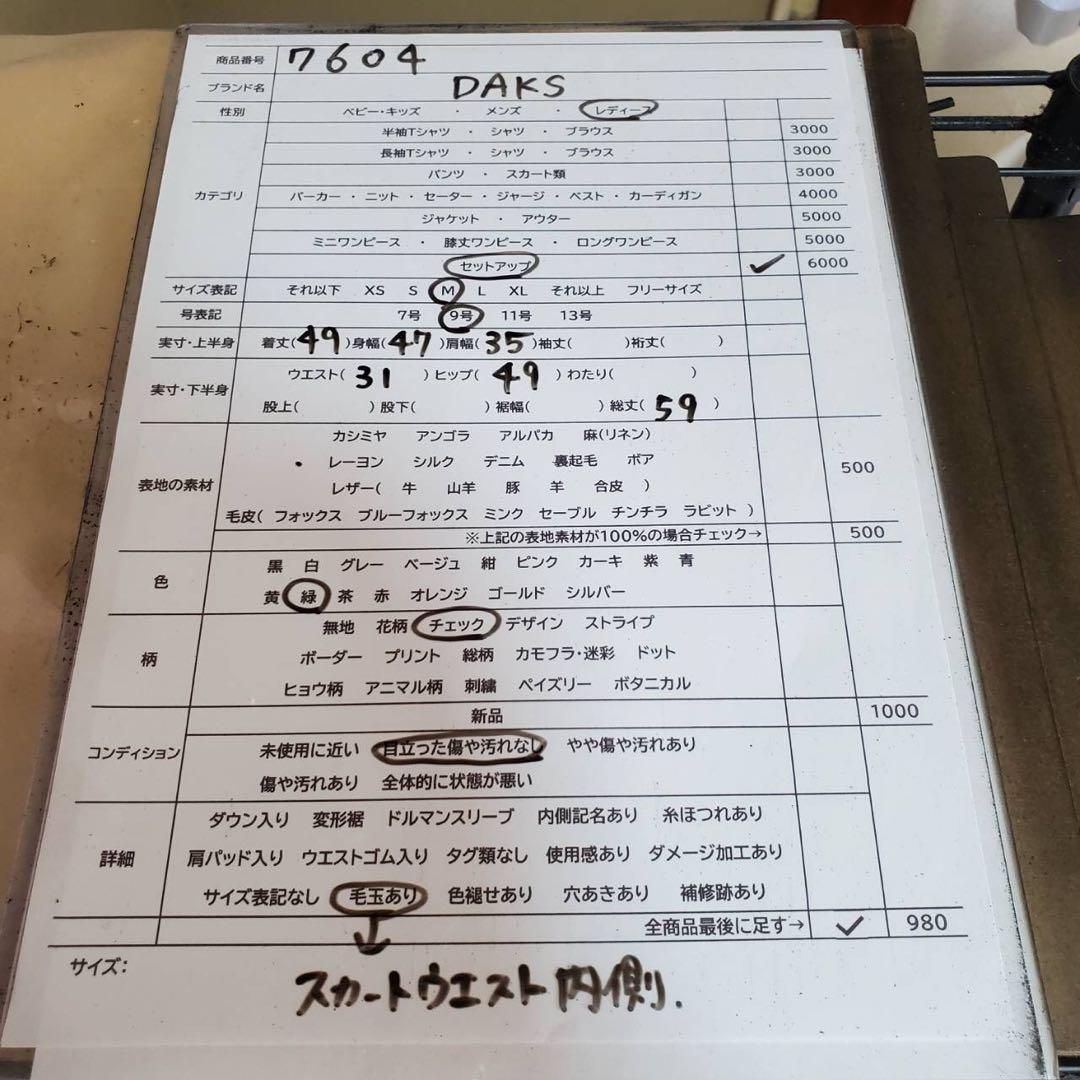 商品番号 7604
ブランド名 DAKS
性別 ベビー・キッズ ・ メンズ ・ レディース
半袖Tシャツ ・ シャツ ・ ブラウス 3000
長袖Tシャツ ・ シャツ ・ ブラウス 3000
パンツ ・ スカート類 3000
カテゴリ パーカー ・ ニット ・ セーター ・ ジャージ ・ ベスト ・ カーディガン 4000
ジャケット ・ アウター 5000
ミニワンピース ・ 膝丈ワンピース ・ ロングワンピース 5000
セットアップ ✓ 6000
サイズ表記 それ以下 XS S M L XL それ以上 フリーサイズ
号表記 7号 9号 11号 13号
実寸・上半身 着丈(49)身幅(47)肩幅(35)袖丈( )裄丈( )
実寸・下半身 ウエスト(31)ヒップ(49)わたり( )
股上( )股下( )裾幅( )総丈(59)
カシミヤ アンゴラ アルパカ 麻(リネン)
・ レーヨン シルク デニム 裏起毛 ボア 500
表地の素材 レザー( 牛 山羊 豚 羊 合皮 )
毛皮( フォックス ブルーフォックス ミンク セーブル チンチラ ラビット )
※上記の表地素材が100%の場合チェック→ 500
色 黒 白 グレー ベージュ 紺 ピンク カーキ 紫 青
黄 緑 茶 赤 オレンジ ゴールド シルバー
無地 花柄 チェック デザイン ストライプ
柄 ボーダー プリント 総柄 カモフラ・迷彩 ドット
ヒョウ柄 アニマル柄 刺繍 ペイズリー ボタニカル
新品 1000
コンディション 未使用に近い 目立った傷や汚れなし やや傷や汚れあり
傷や汚れあり 全体的に状態が悪い
ダウン入り 変形裾 ドルマンスリーブ 内側記名あり 糸ほつれあり
詳細 肩パッド入り ウエストゴム入り タグ類なし 使用感あり ダメージ加工あり
サイズ表記なし 毛玉あり 色褪せあり 穴あきあり 補修跡あり
全商品最後に足す→ ✓ 980
サイズ:
スカートウエスト内側.